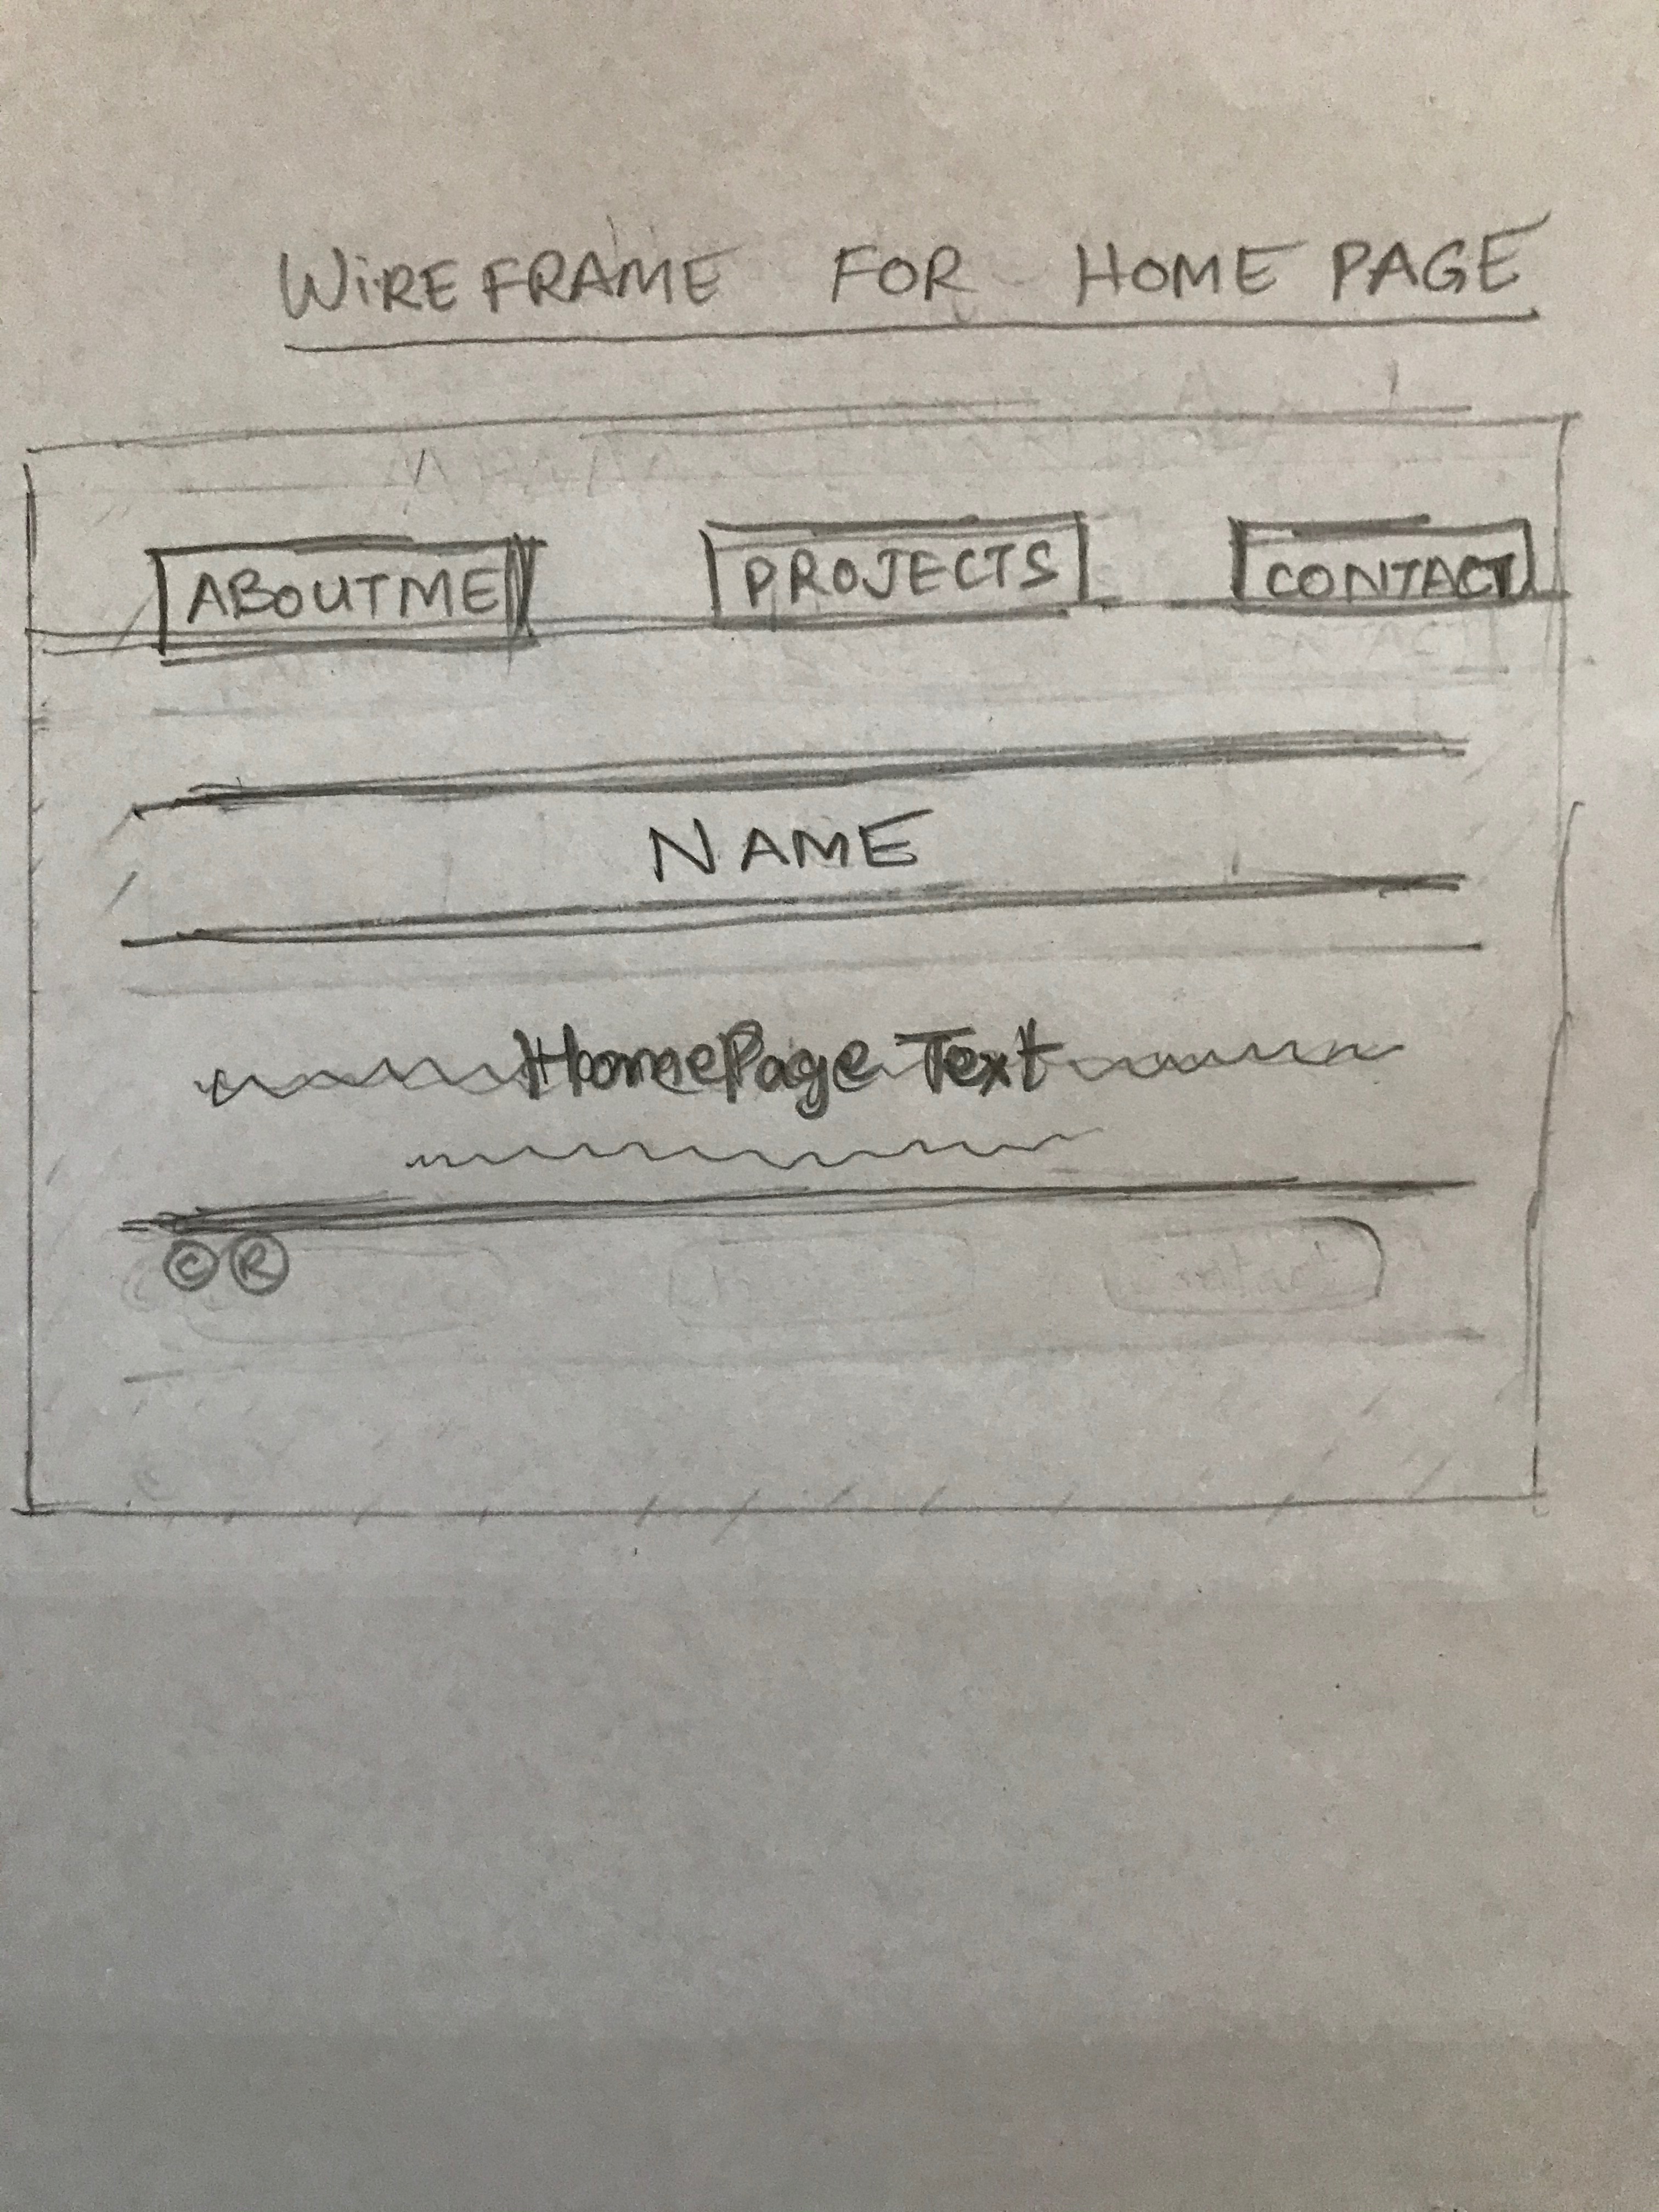 WiREFRAME FOR HOME PAGE
ABOUTME PROJECTS CONTACT
NAME
HomePage Text
© ®